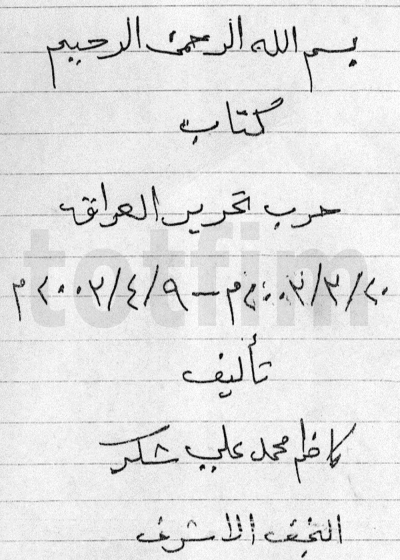 بسم الله الرحمن الرحيم
كتاب
حرب تحرير العراق
٢٠/٣/٢٠٠٣م – ٩/٤/٢٠٠٣م
تأليف
كاظم محمد علي شكر
النجف الاشرف
totfim